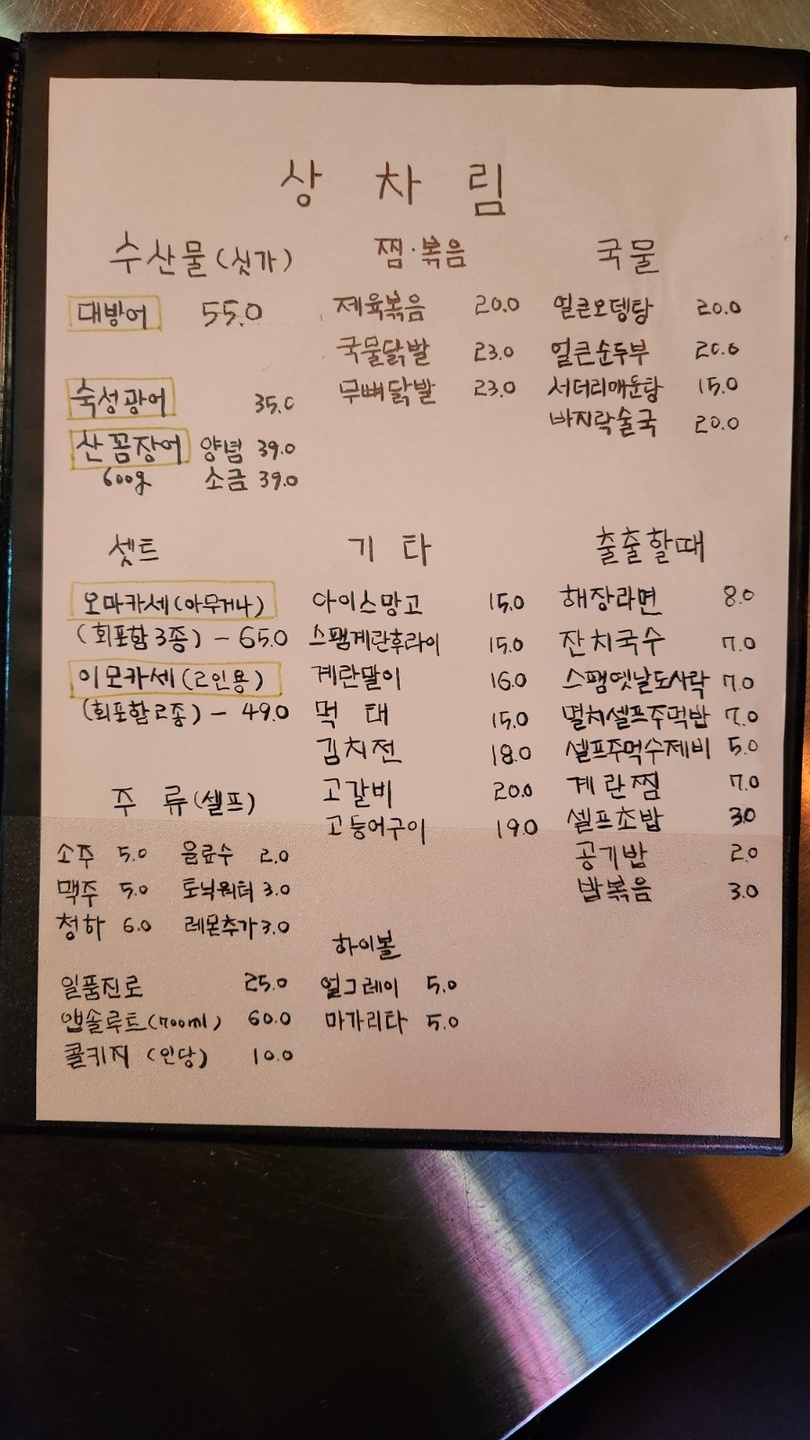 상 차 림
수산물(싯가)
대방어 55.0
숙성광어 35.0
산꼼장어 양념 39.0
600g 소금 39.0
찜·볶음
제육볶음 20.0
국물닭발 23.0
무뼈닭발 23.0
국물
얼큰오뎅탕 20.0
얼큰순두부 20.0
서더리매운탕 15.0
바지락술국 20.0
셋트
오마카세(아무거나)
(회포함3종) - 65.0
이모카세(2인용)
(회포함2종) - 49.0
기 타
아이스망고 15.0
스팸계란후라이 15.0
계란말이 16.0
먹 태 15.0
김치전 18.0
고갈비 20.0
고등어구이 19.0
출출할때
해장라면 8.0
잔치국수 7.0
스팸옛날도시락 7.0
멸치셀프주먹밥 7.0
셀프주먹수제비 5.0
계란찜 7.0
셀프초밥 3.0
공기밥 2.0
밥볶음 3.0
주 류(셀프)
소주 5.0 음료수 2.0
맥주 5.0 토닉워터 3.0
청하 6.0 레몬추가 3.0
일품진로 25.0
앱솔루트(700ml) 60.0
콜키지 (인당) 10.0
하이볼
얼그레이 5.0
마가리타 5.0